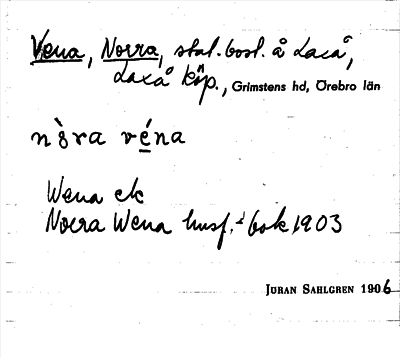 Vena, Norra, stat. bost. å Laxå,
Laxå köp., Grimstens hd, Örebro län
nòra véna
Wena ek
Norra Wena husf.-bok 1903
JURAN SAHLGREN 1906